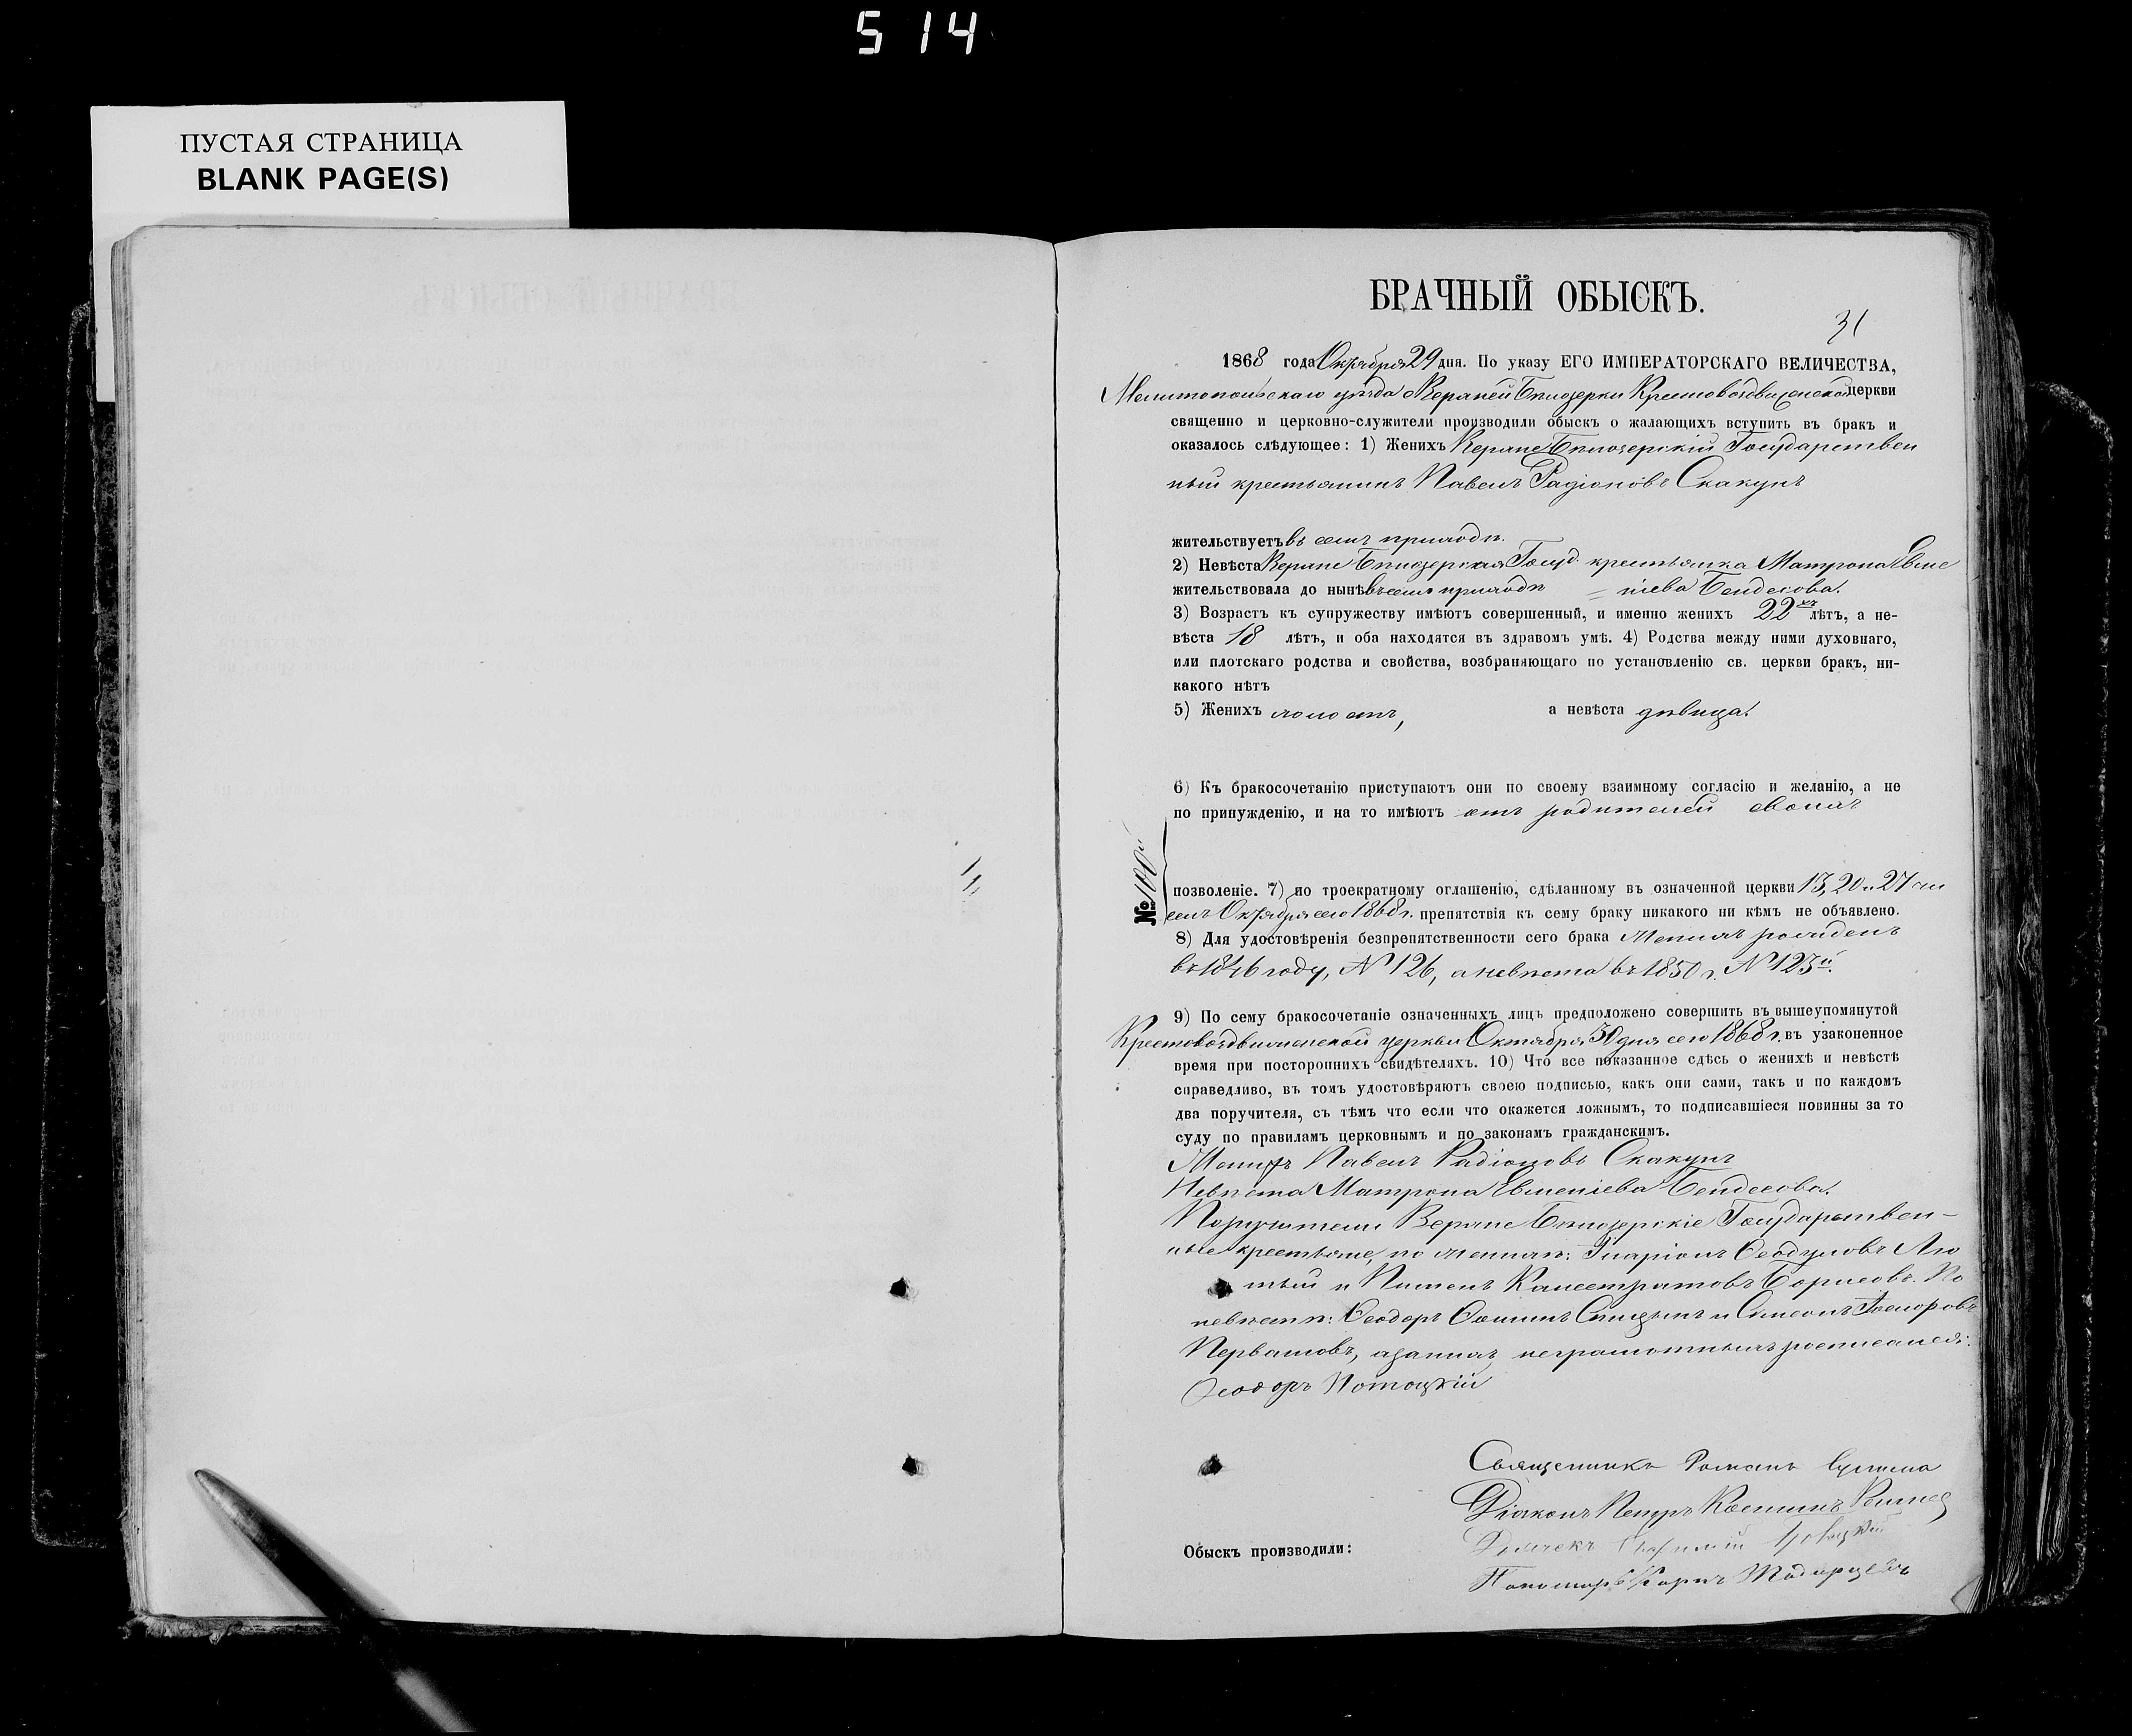 514
ПУСТАЯ СТРАНИЦА
BLANK PAGE(S)
БРАЧНЫЙ ОБЫСКЪ.
31
1868 года Октября 29 дня. По указу ЕГО ИМПЕРАТОРСКАГО ВЕЛИЧЕСТВА,
Мелитопольскаго уѣзда Верхней Бѣлозерки Крестовоздвиженской церкви
священно и церковно-служители производили обыскъ о жалающихъ вступить въ бракъ и
оказалось слѣдующее: 1) Женихъ Верхне Бѣлозерскій Государствен
ный крестьянинъ Павелъ Радіоновъ Скакунъ
жительствуетъ въ семъ приходѣ.
2) Невѣста Верхне Бѣлозерская Госуд. крестьянка Матрона Евме
жительствовала до нынѣ въ семъ приходѣ = ніева Бендесова.
3) Возрастъ къ супружеству имѣютъ совершенный, и именно женихъ 22хъ лѣтъ, а не-
вѣста 18 лѣтъ, и оба находятся въ здравомъ умѣ. 4) Родства между ними духовнаго,
или плотскаго родства и свойства, возбраняющаго по установленію св. церкви бракъ, ни-
какого нѣтъ
5) Женихъ холостъ, а невѣста дѣвица.
6) Къ бракосочетанію приступаютъ они по своему взаимному согласію и желанію, а не
по принужденію, и на то имѣютъ отъ родителей своихъ
№ 100й
позволеніе. 7) по троекратному оглашенію, сдѣланному въ означенной церкви 13, 20 и 27 чи
селъ Октября сего 1868 г. препятствія къ сему браку никакого ни кѣмъ не объявлено.
8) Для удостовѣренія безпрепятственности сего брака Женихъ рожденъ
въ 1846 году, № 126, а невѣста въ 1850 г. № 123й.
9) По сему бракосочетаніе означенныхъ лицъ предположено совершить въ вышеупомянутой
Крестовоздвиженской церкви Октября 30 дня сего 1868 г. въ узаконенное
время при постороннихъ свидѣтеляхъ. 10) Что все показанное сдѣсь о женихѣ и невѣстѣ
справедливо, въ томъ удостовѣряютъ своею подписью, какъ они сами, такъ и по каждомъ
два поручителя, съ тѣмъ что если что окажется ложнымъ, то подписавшіеся повинны за то
суду по правиламъ церковнымъ и по законамъ гражданскимъ.
Женихъ Павелъ Радіоновъ Скакунъ
Невѣста Матрона Евменіева Бендесова.
Поручители Верхне Бѣлозерскіе Государствен-
ные крестьяне, по женихѣ: Иларіонъ Ѳеодуловъ Лю
тый и Пименъ Калестратовъ Борисовъ. По
невѣстѣ: Ѳеодоръ Ѳоминъ Спицынъ и Симеонъ
Перваковъ, а за нихъ неграмотныхъ росписался:
Ѳеодоръ Потоцкій
Священникъ Романъ
Діаконъ Петръ Косминъ
Обыскъ производили:
Дьячекъ
Пономарь Карпъ